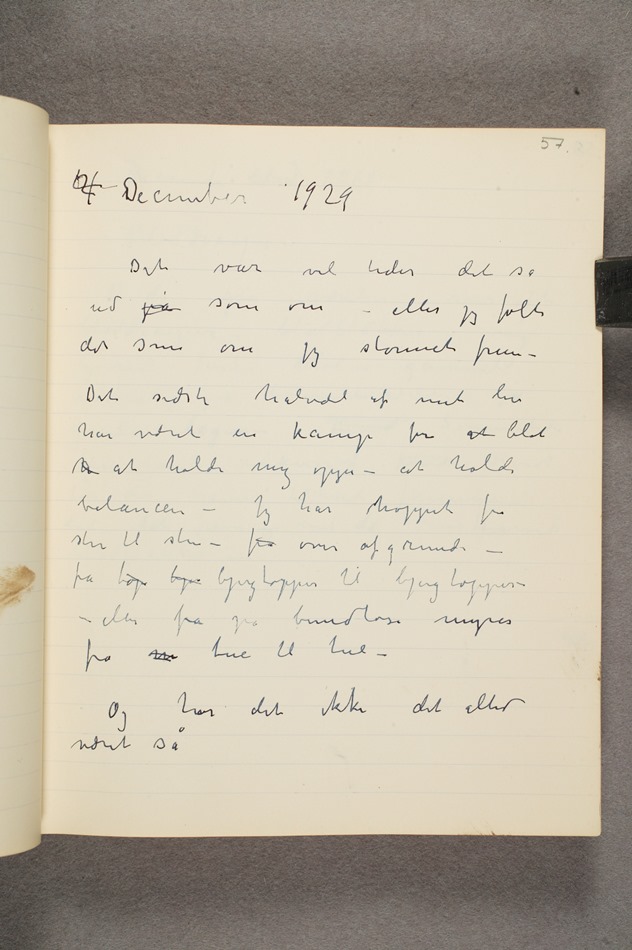 57.
4 December 1929
Det var vel tider det så
ud på som om – eller jeg følte
det som om jeg stormet frem –
Det sidste halvdel af mit liv
har været en kamp for at blot
at holde mig oppe – at holde
balancen – Jeg har hoppet fra
sten til sten – fra over afgrunde –
fra bjergtopper til bjergtopper
– eller fra på bundløse myrer
fra tue til tue –
Og har det ikke det altid
været så